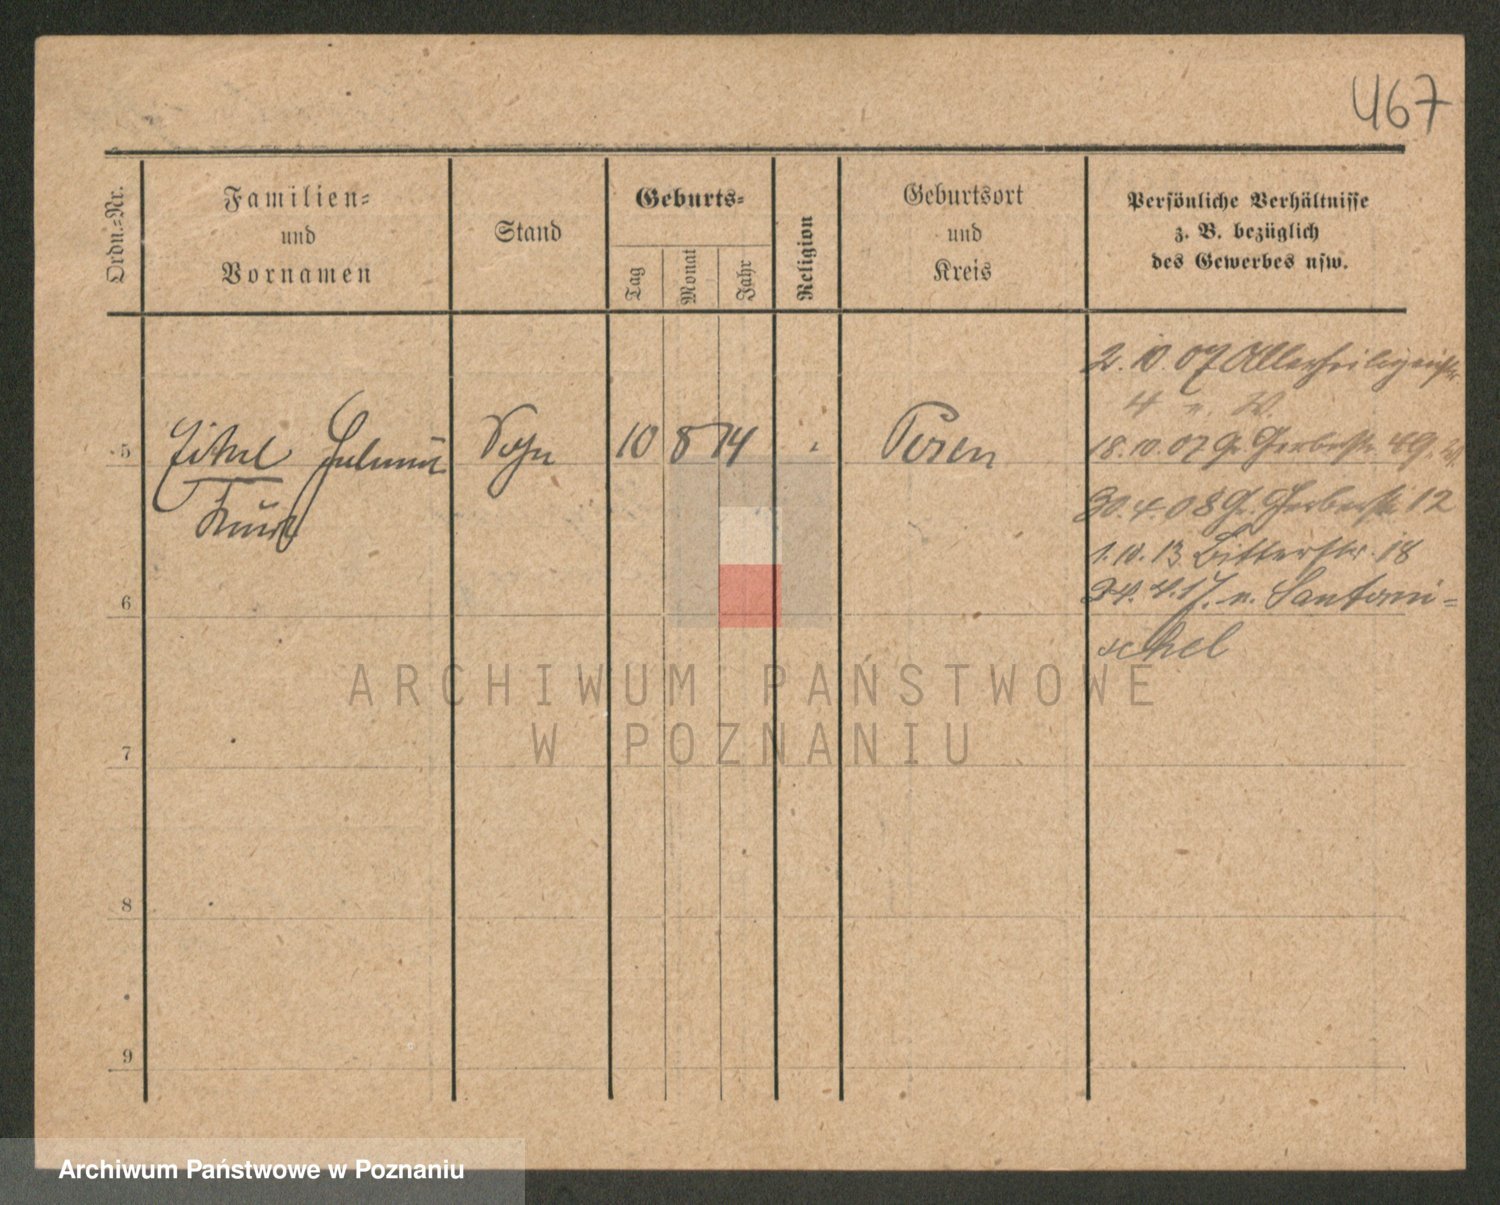 467
Ordn.=Nr.
Familien=
und
Vornamen
Stand
Geburts=
Tag
Monat
Jahr
Religion
Geburtsort
und
Kreis
Persönliche Verhältnisse
z. B. bezüglich
des Gewerbes usw.
2. 10. 07 Allerheiligenstr.
4
5
Sohn
10 8 14
Posen
18. 10. 07 Gr. Gerberstr. 49.
30. 4. 08 Gr. Gerberstr. 12
Kurt
1. 10. 13 Bitterstr. 18
6
24. 4. 17. n. Santomi=
schel
ARCHIWUM PAŃSTWOWE
W POZNANIU
7
8
9
Archiwum Państwowe w Poznaniu